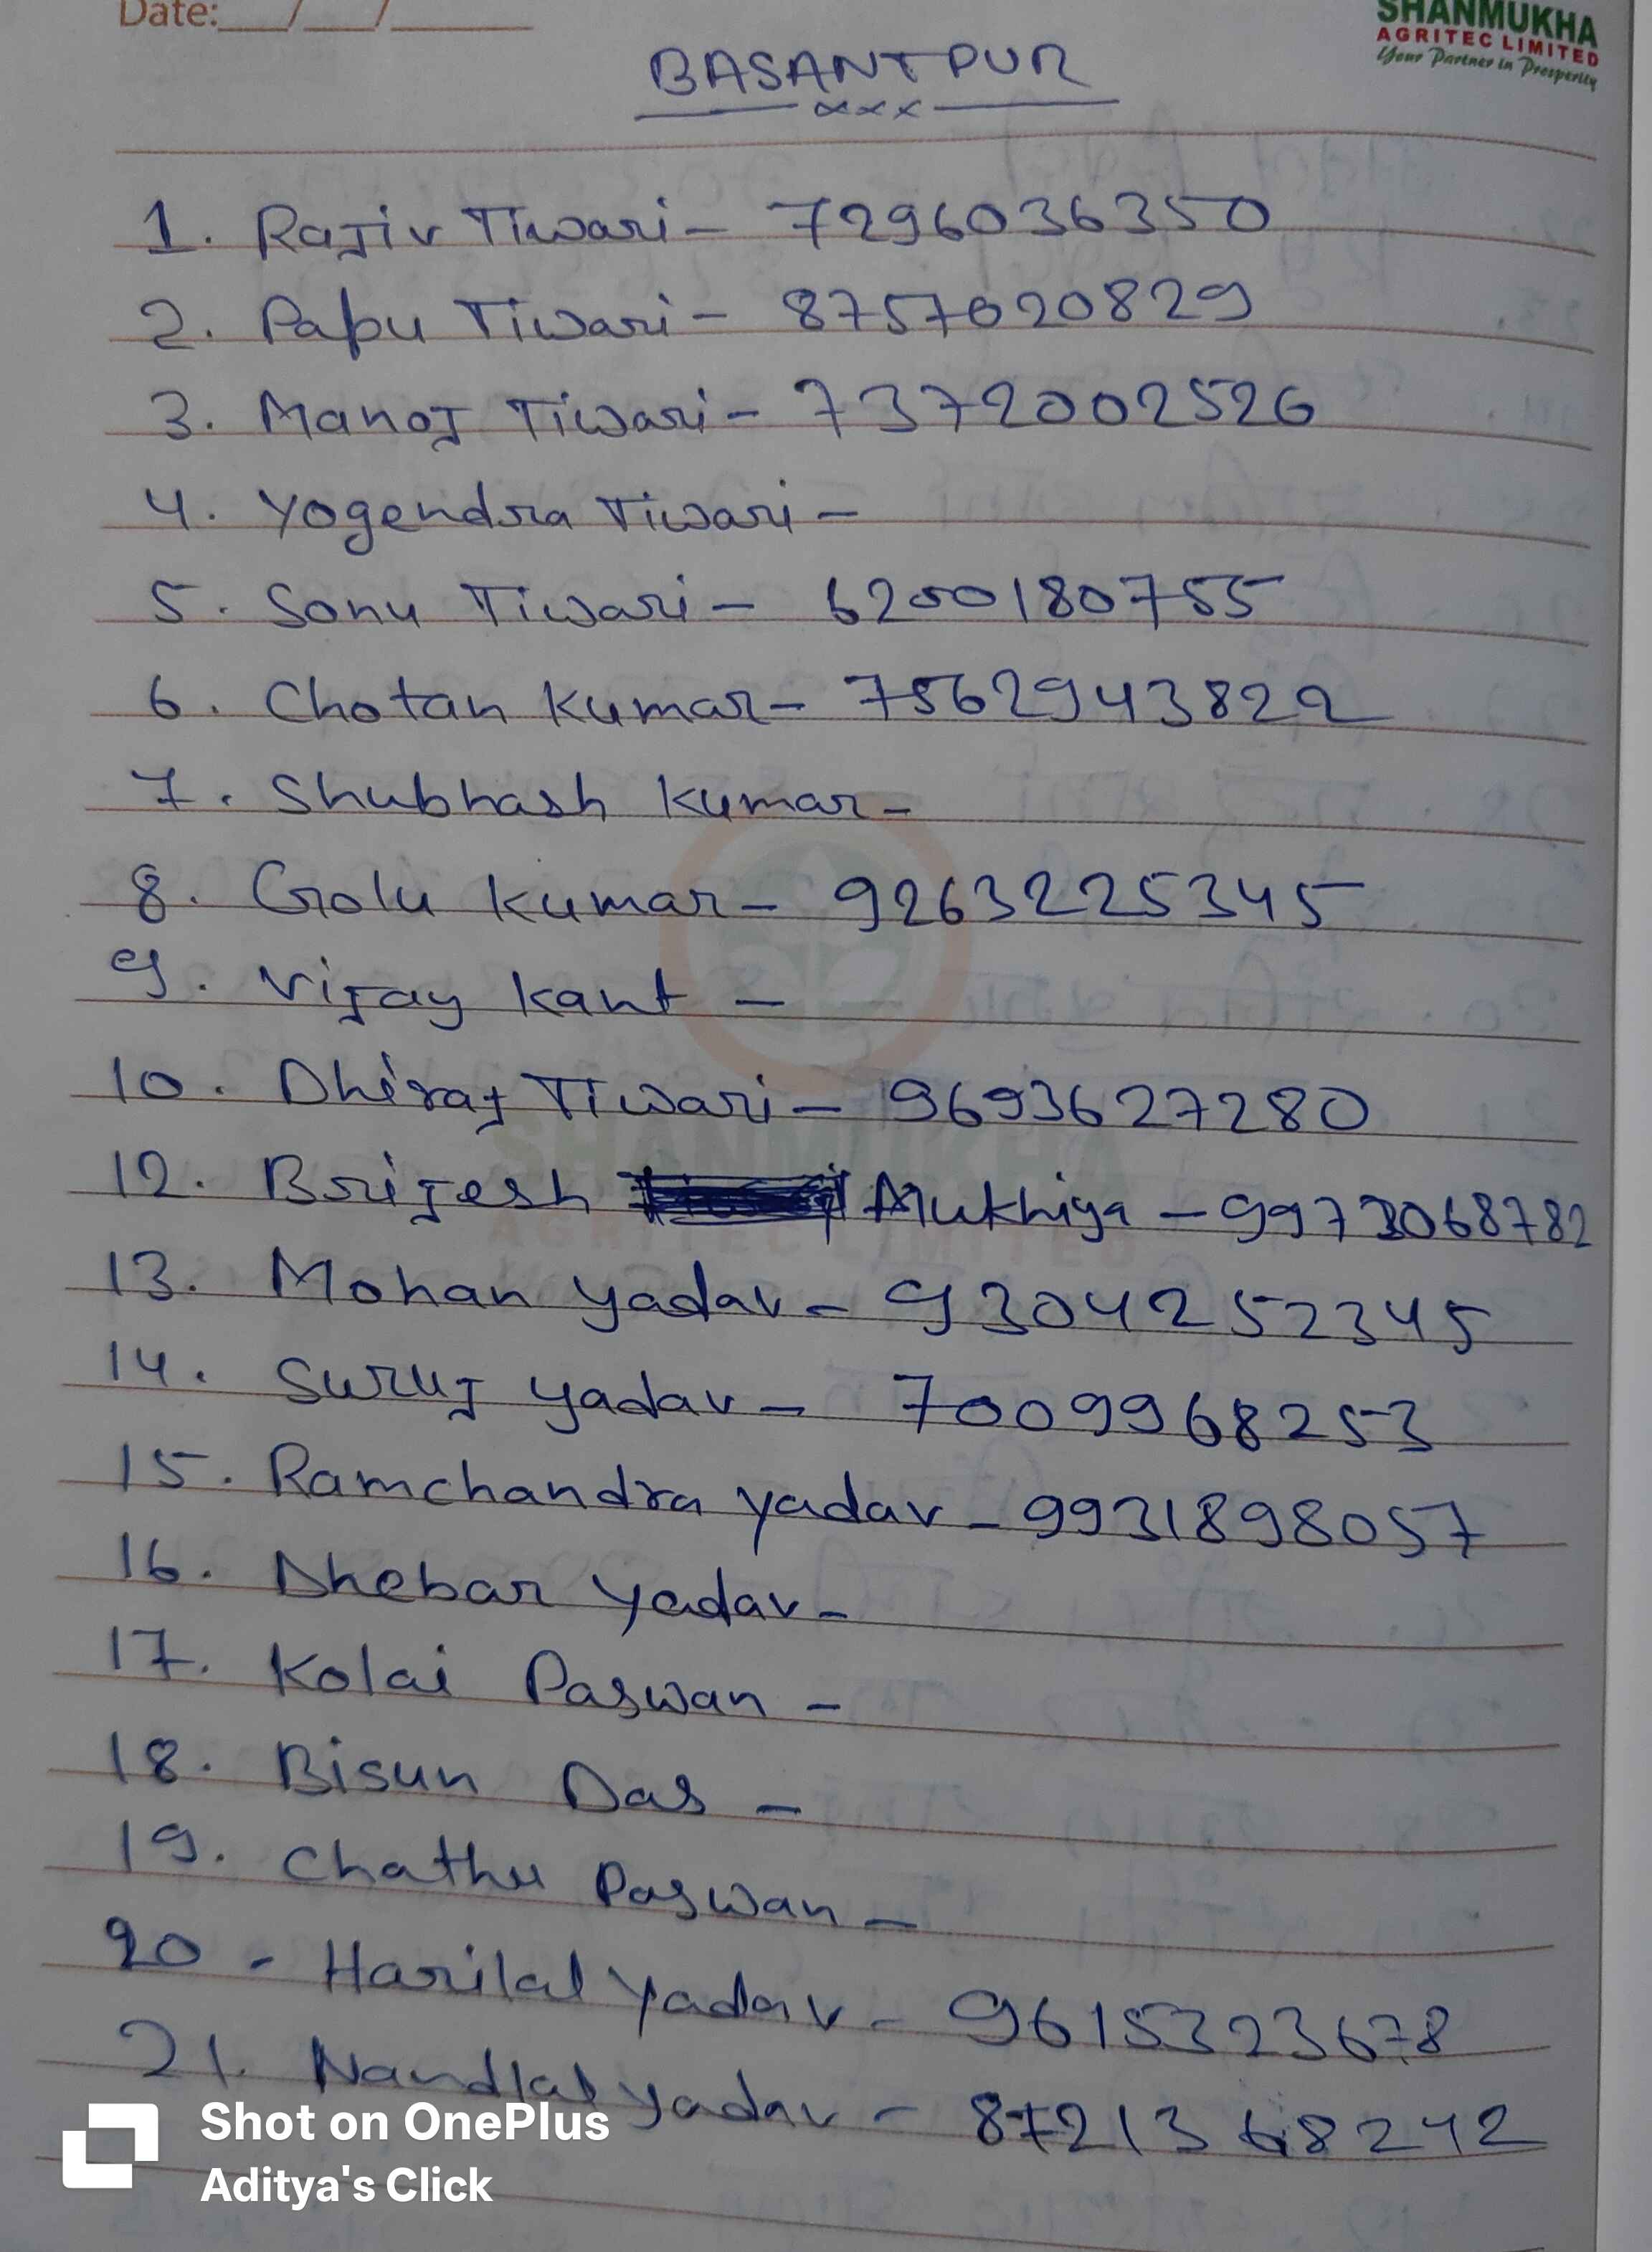 Date:___/___/______
SHANMUKHA
AGRITEC LIMITED
Your Partner in Prosperity
BASANTPUR
xxx
1. Rajiv Tiwari - 7296036350
2. Papu Tiwari - 8757020829
3. Manoj Tiwari - 7372002526
4. Yogendra Tiwari -
5. Sonu Tiwari - 6200180755
6. Chotan Kumar - 7562943822
7. Shubhash Kumar -
8. Golu Kumar - 9263225345
9. Vijay Kant -
10. Dhiraj Tiwari - 9693627280
12. Brijesh Mukhiya - 9973068782
13. Mohan Yadav - 9304252345
14. Suruj Yadav - 7009968253
15. Ramchandra Yadav - 9931898057
16. Dhebar Yadav -
17. Kolai Paswan -
18. Bisun Das -
19. Chathu Paswan -
20 - Harilal Yadav - 9615323678
21. Nandlal Yadav - 8721368242
SHANMUKHA
AGRITEC LIMITED
Shot on OnePlus
Aditya's Click